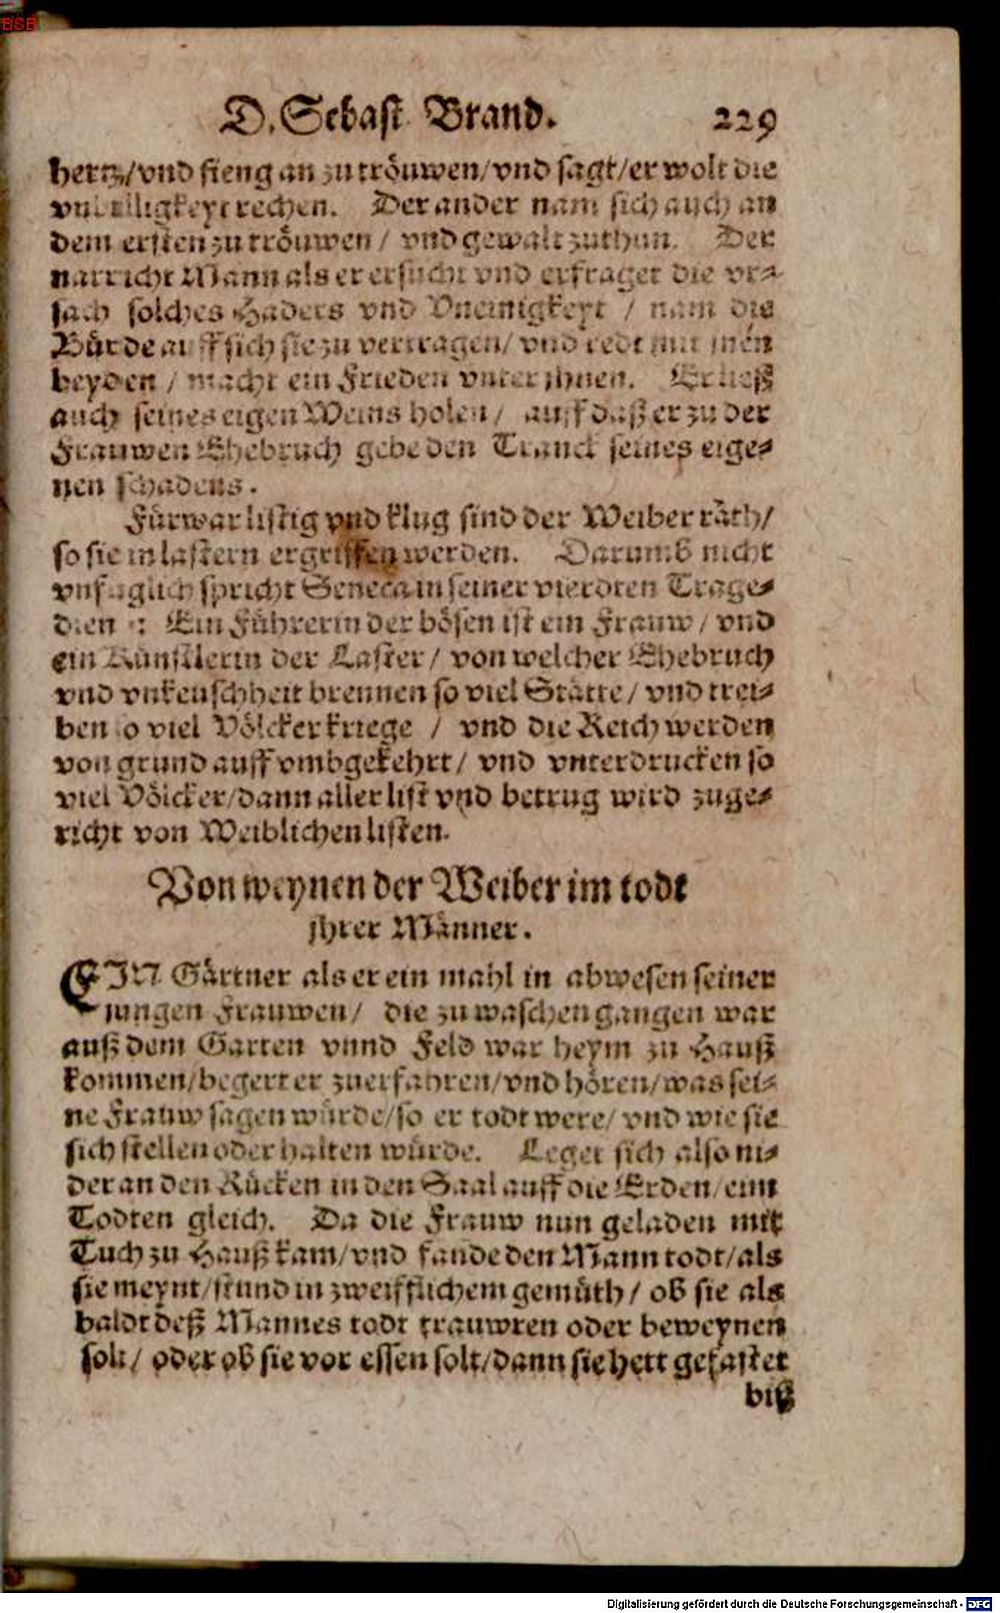 BSB
D. Sebast Brand. 229
hertz/vnd fieng an zu tröuwen/vnd sagt/er wolt die
vnbilligkeyt rechen. Der ander nam sich auch an
dem ersten zu tröuwen / vnd gewalt zuthun. Der
narricht Mann als er ersucht vnd erfraget die vr-
sach solches Haders vnd Vneinigkeyt / nam die
Bürde auff sich sie zu vertragen/ vnd redt mit jnen
beyden / macht ein Frieden vnter jhnen. Er ließ
auch seines eigen Weins holen / auff daß er zu der
Frauwen Ehebruch gebe den Tranck seines eige-
nen schadens.
Fürwar listig vnd klug sind der Weiber räth/
so sie in lastern ergriffen werden. Darumb nicht
vnfüglich spricht Seneca in seiner vierdten Trage-
dien : Ein Führerin der bösen ist ein Frauw / vnd
ein Künstlerin der Laster / von welcher Ehebruch
vnd vnkeuschheit brennen so viel Stätte / vnd trei-
ben so viel Völcker kriege / vnd die Reich werden
von grund auff vmbgekehrt / vnd vnterdrucken so
viel Völcker/dann aller list vnd betrug wird zuge-
richt von Weiblichen listen.
Von weynen der Weiber im todt
jhrer Männer.
EIN Gärtner als er ein mahl in abwesen seiner
jungen Frauwen / die zu waschen gangen war
auß dem Garten vnnd Feld war heym zu Hauß
kommen/begert er zuerfahren/vnd hören/was sei-
ne Frauw sagen würde/so er todt were/ vnd wie sie
sich stellen oder halten würde. Leget sich also ni-
der an den Rücken in den Saal auff die Erden/eim
Todten gleich. Da die Frauw nun geladen mit
Tuch zu Hauß kam/vnd fande den Mann todt/als
sie meynt/stund in zweifflichem gemüth / ob sie als
baldt deß Mannes todt trauwren oder beweynen
solt / oder ob sie vor essen solt/dann sie hett gefastet
biß
Digitalisierung gefördert durch die Deutsche Forschungsgemeinschaft - DFG